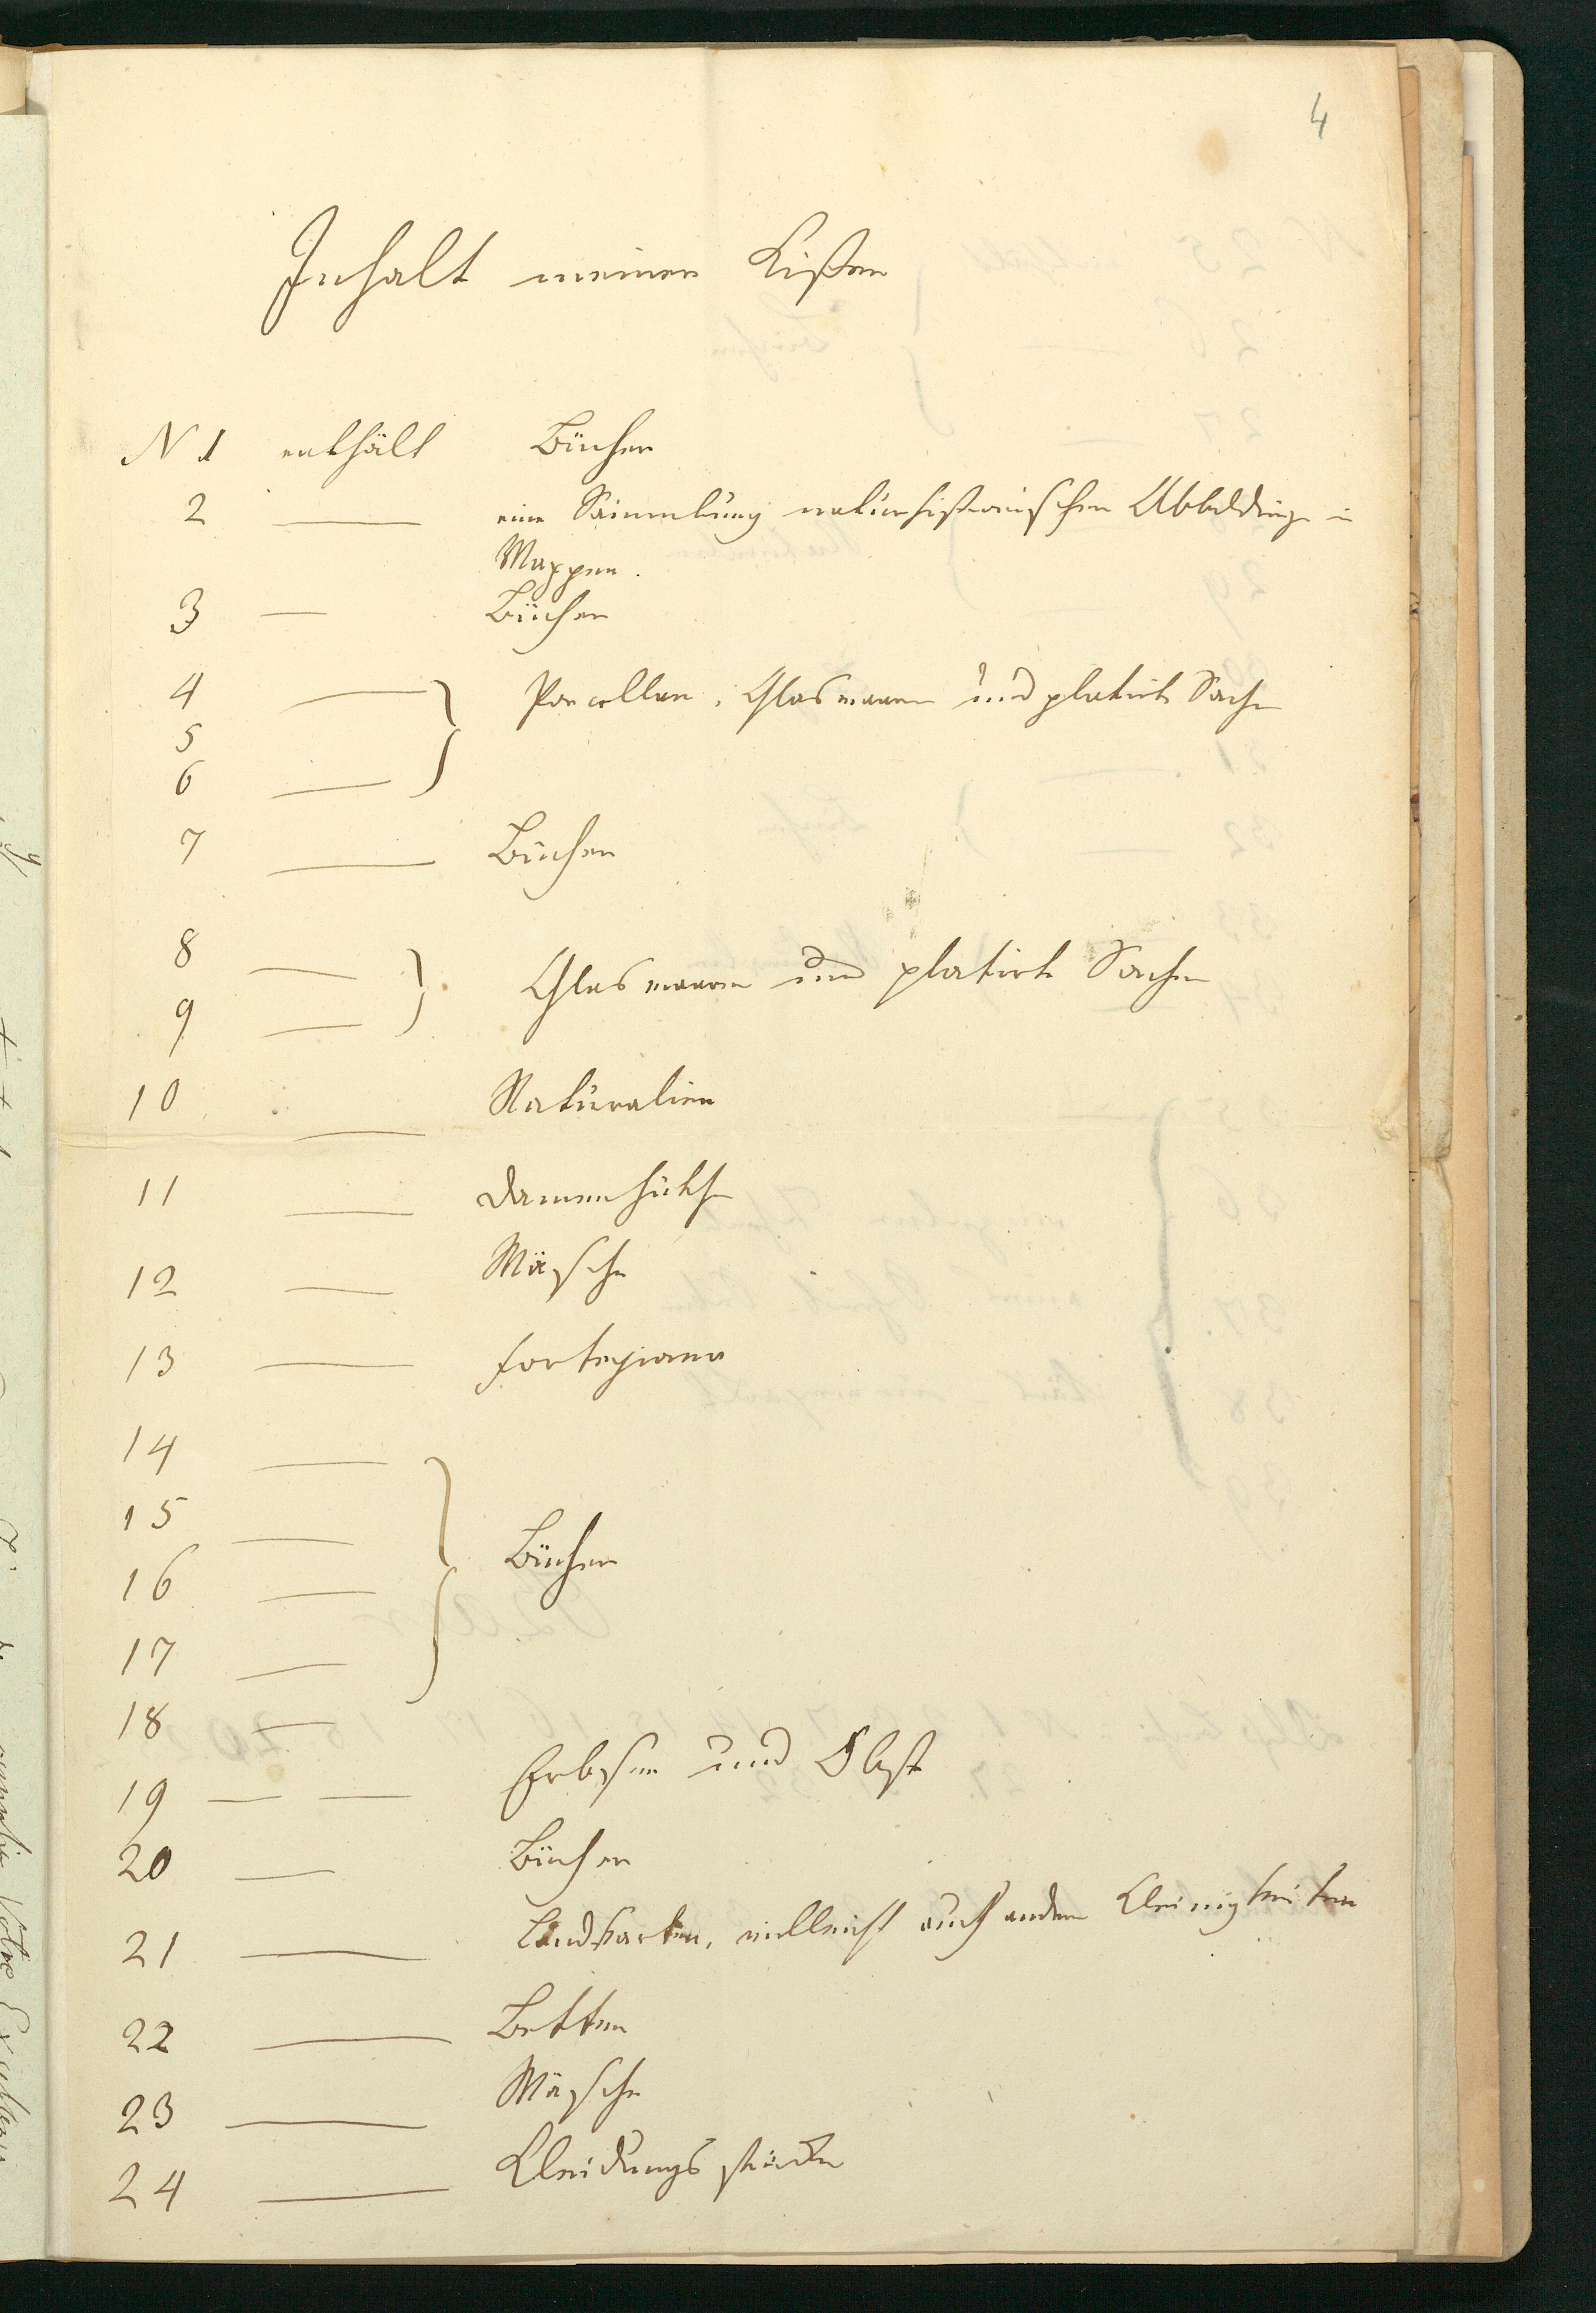 4
Inhalt meiner Kisten
N 1 enthält Bücher
2 — eine Sammlung naturhistorischer Abbildunge in
Mappen.
3 — Bücher
4 — Porcellan, Glaswaaren und platirte Sachen
5
6 —
7 — Bücher
8 —
9 — Glaswaaren und platirte Sachen
10 — Naturalien
11 — Damenhüthe
12 — Wäsche
13 — Fortepiano
14 —
15 —
16 — Bücher
17 —
18 —
19 — — Erbsen und Obst
20 — Bücher
21 — Landkarten, vielleicht auch andere Kleinigkeiten
22 — Betten
23 — Wäsche
24 — Kleidungsstücke